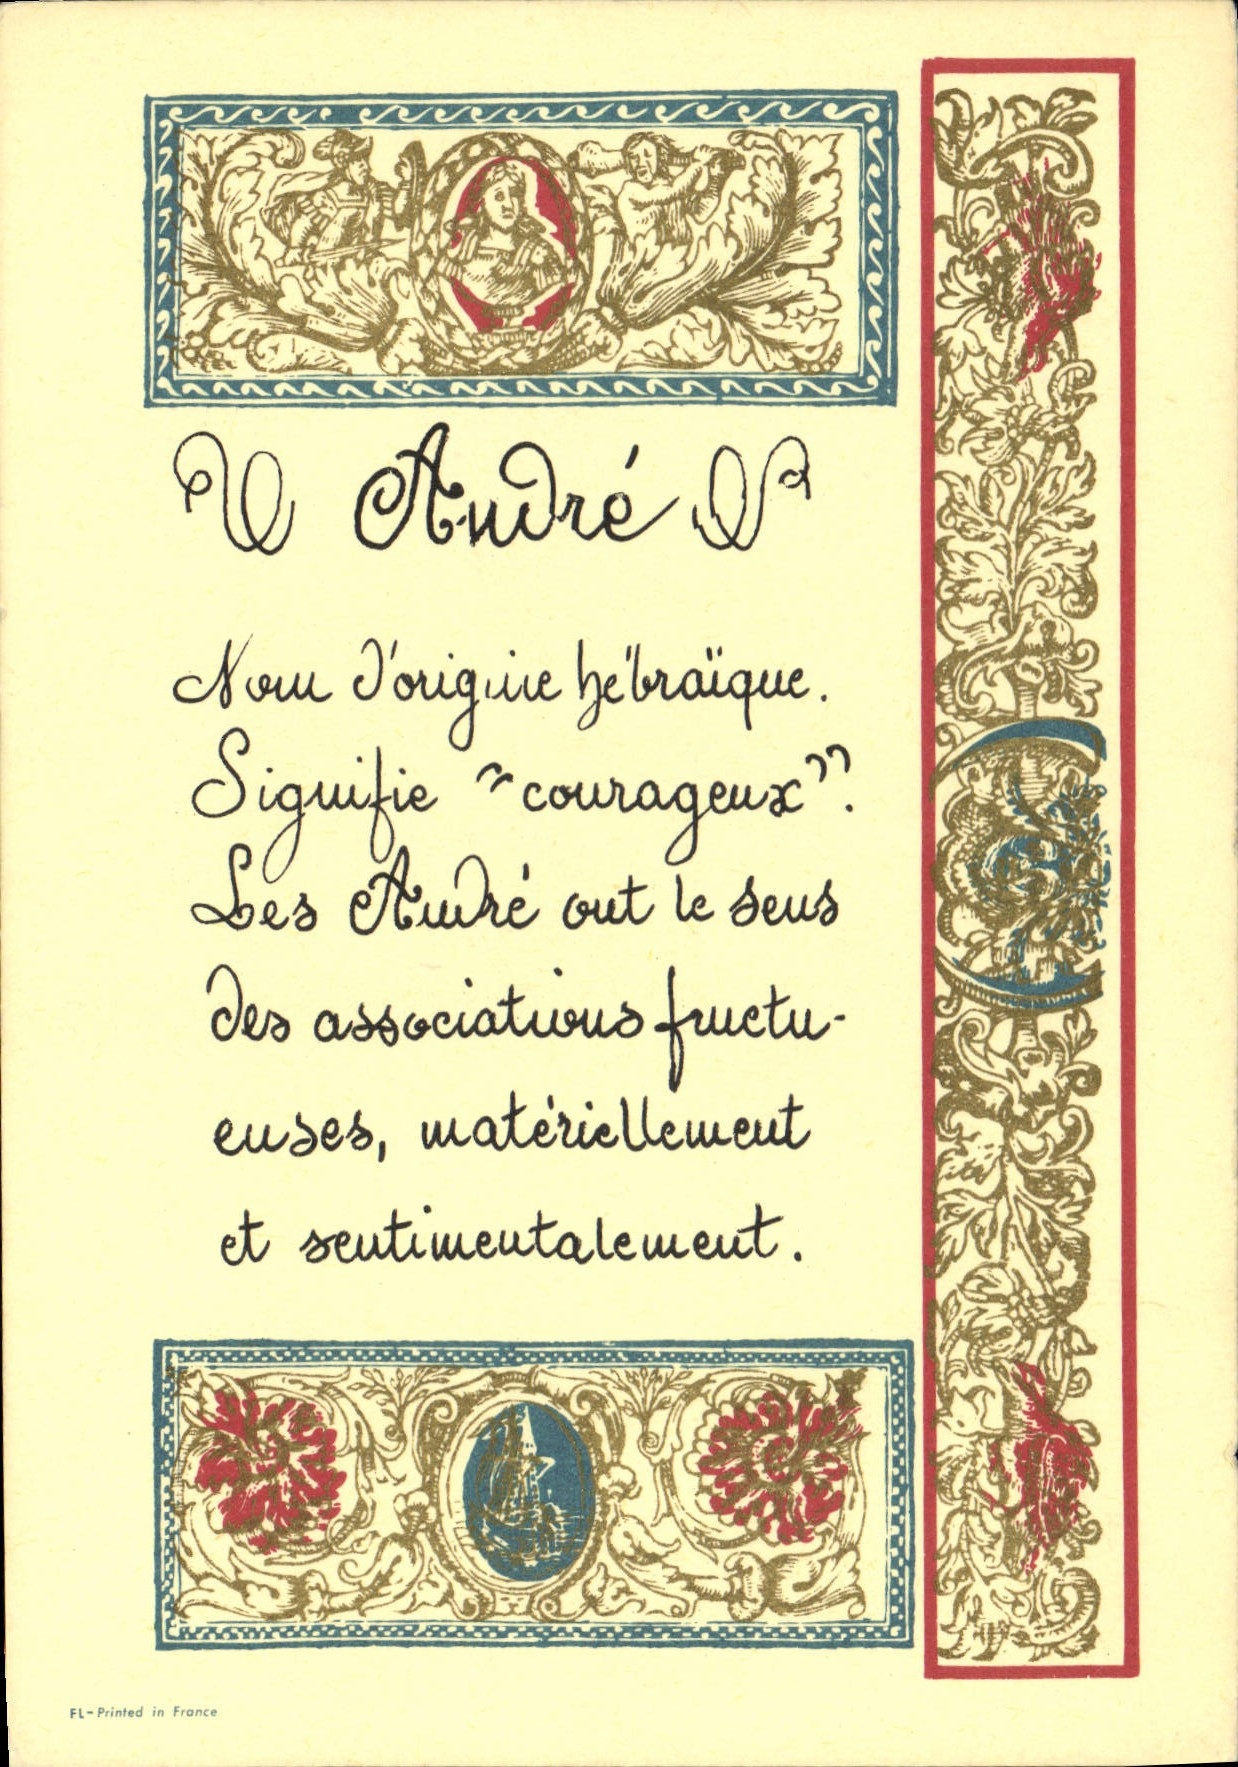 André
Nom d'origine hébraïque.
Signifie "courageux".
Les André ont le sens
des associations fructu-
euses, matériellement
et sentimentalement.
FL-Printed in France